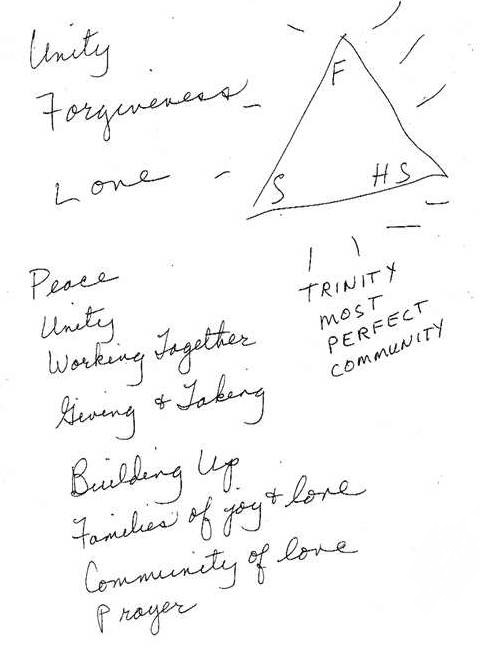 Unity
Forgiveness
Love
F
S
HS
TRINITY
MOST
PERFECT
COMMUNITY
Peace
Unity
Working Together
Giving & Taking
Building Up
Families of joy & love
Community of love
Prayer